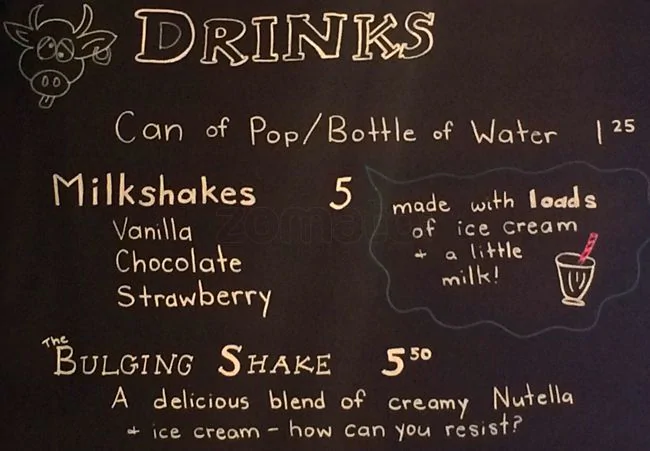 DRINKS
Can of Pop/Bottle of Water 1 25
Milkshakes 5
Vanilla
Chocolate
Strawberry
made with loads
of ice cream
+ a little
milk!
The
BULGING SHAKE 5 50
A delicious blend of creamy Nutella
+ ice cream - how can you resist?